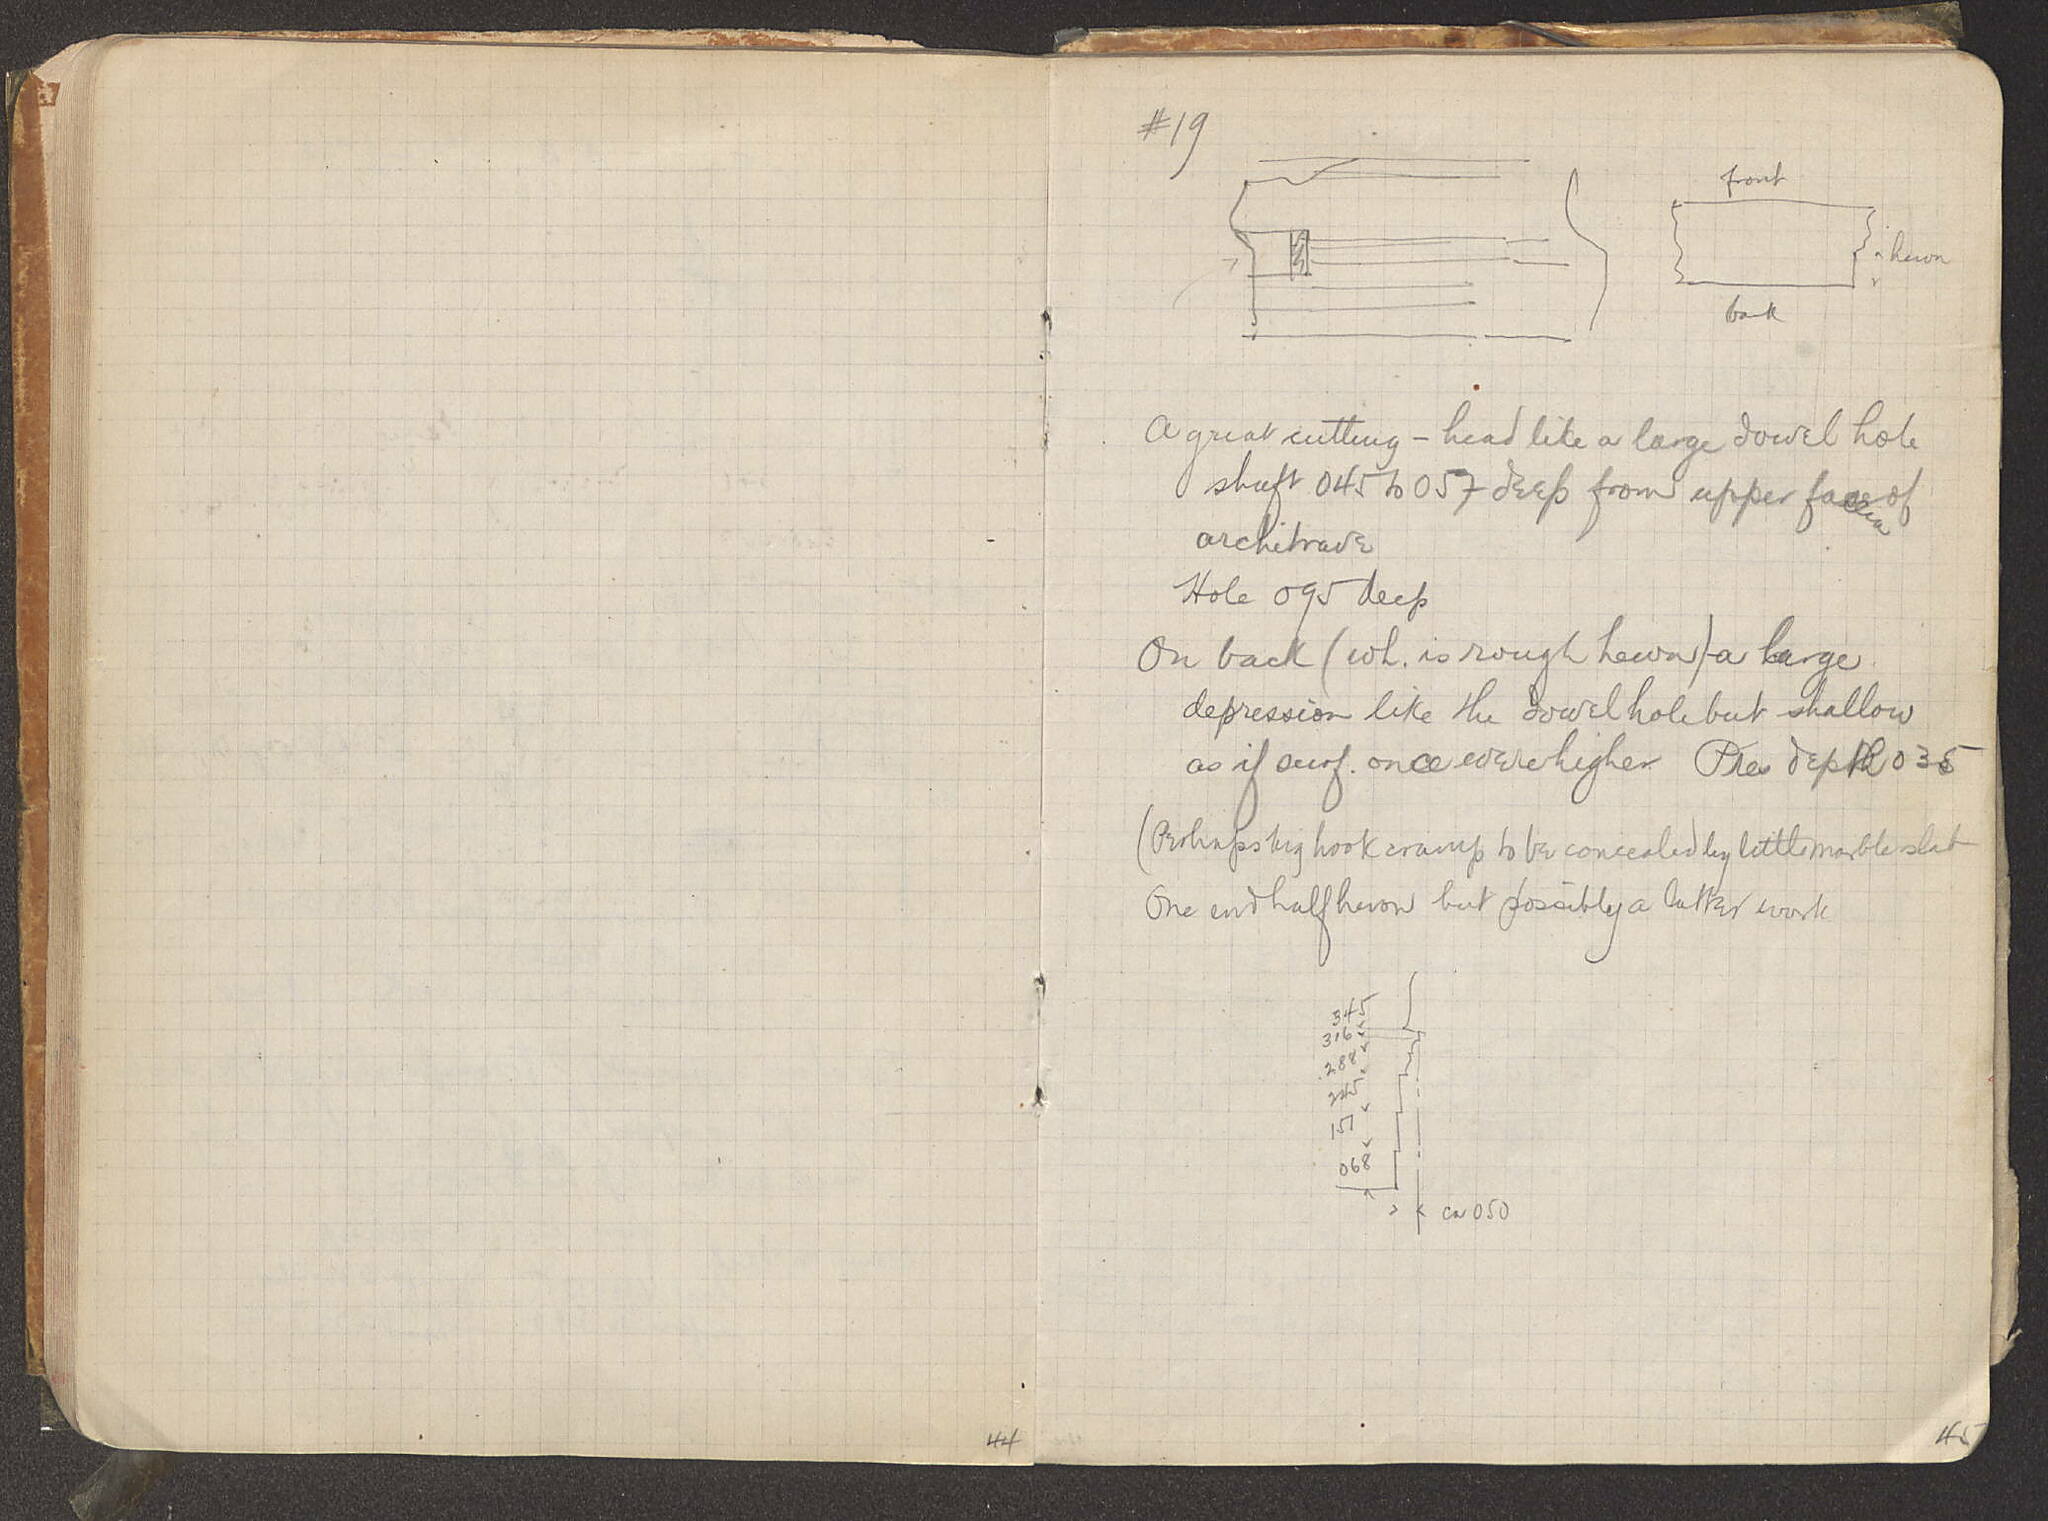 #19
front
hewn
back
A great cutting – head like a large dowel hole
shaft 045 to 057 deep from upper fascia of
architrave
Hole 095 deep
On back (wh. is rough hewn) a large
depression like the dowel hole but shallow
as if surf. once were higher Pres depth 035
(Perhaps big hook cramp to be concealed by little marble slab
One end half hewn but possibly a latter work
345
316
.288
245
157
068
ca 050
44
45